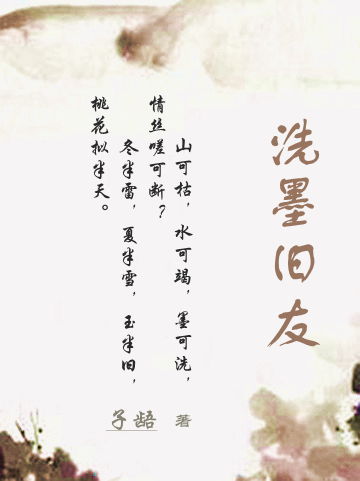 洗墨旧友
山可枯，水可竭，墨可洗，
情丝嗟可断？
冬半雷，夏半雪，玉半旧，
桃花拟半天。
子龉 著